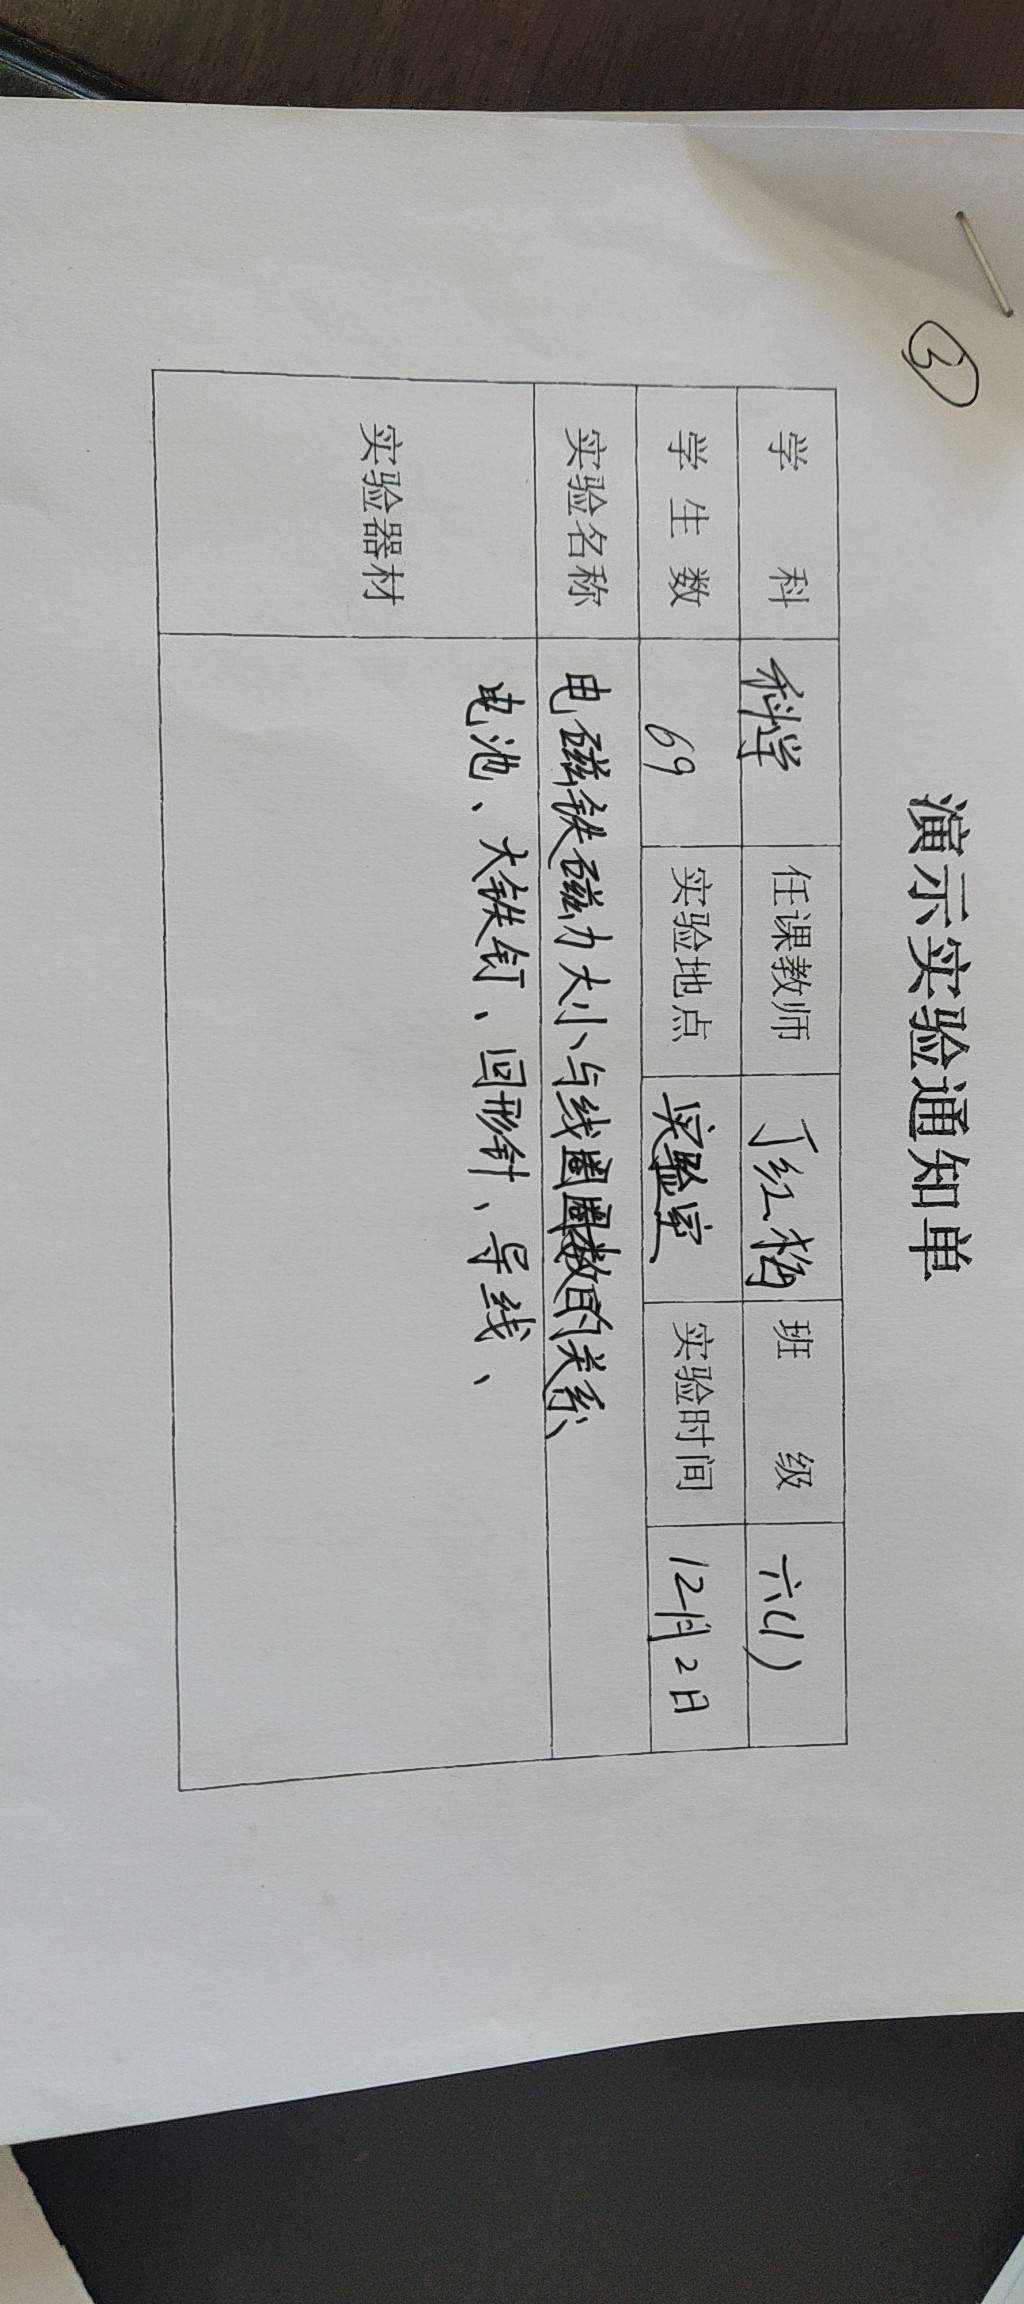 ③
演示实验通知单
学 科 科学 任课教师 丁红梅 班 级 六(1)
学生数 69 实验地点 实验室 实验时间 12月2日
实验名称 电磁铁磁力大小与线圈圈数的关系
实验器材 电池、大铁钉、回形针、导线、